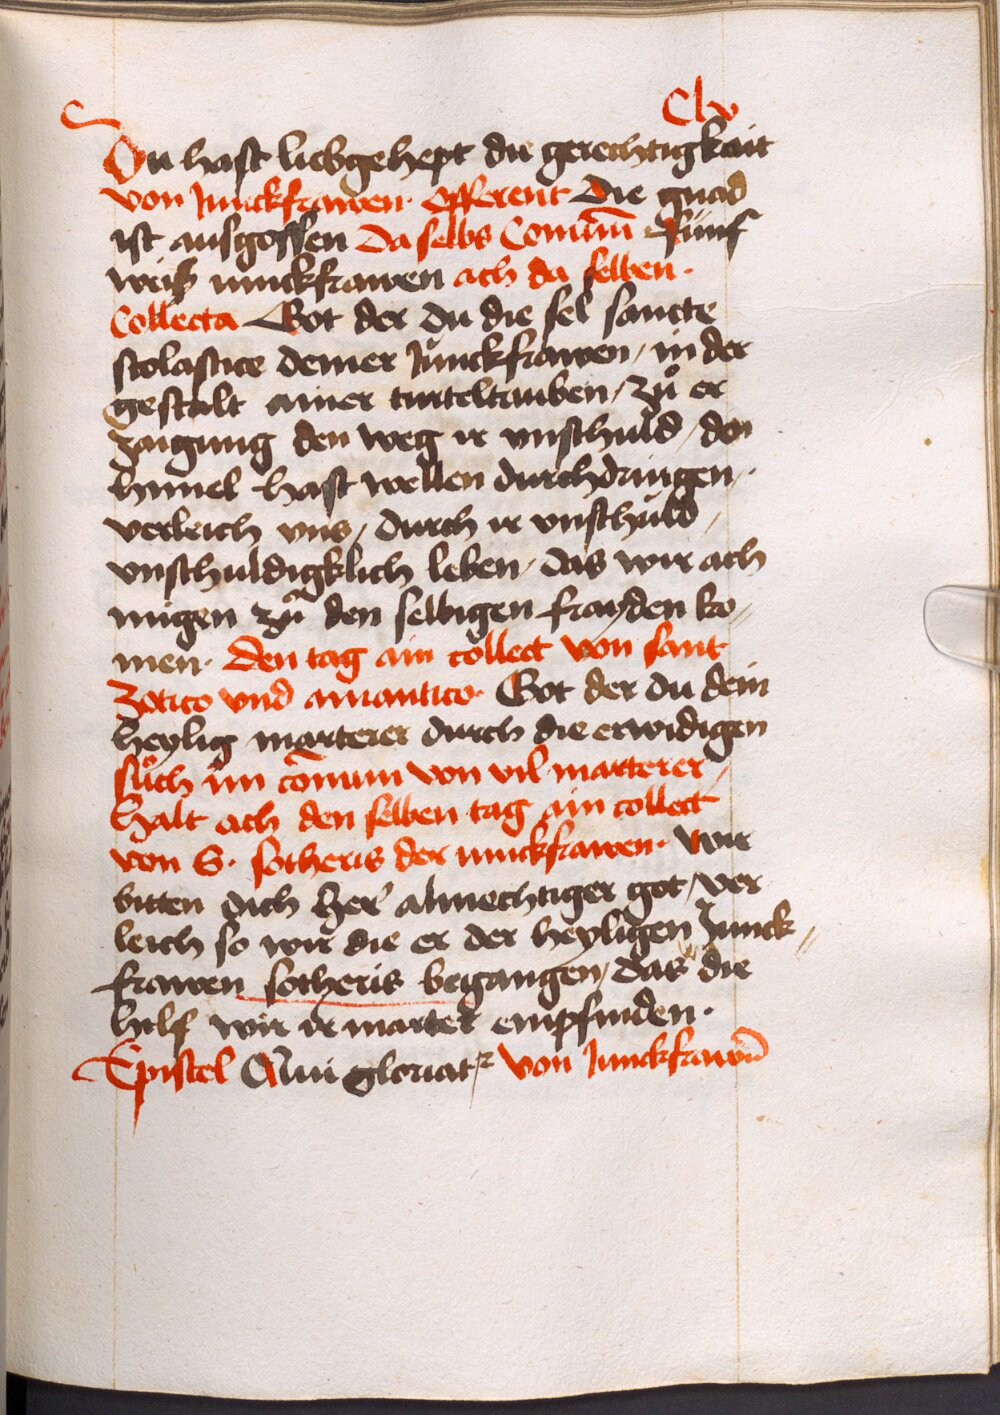 Clv
Du hast liebgehept die gerechtigkait
von Junckfrawen. Offerent Die gnad
ist ausgossen Da selbs Comūm Fünf
weiß iunckfrawen ach da selben.
Collecta Got der du die sel sancte
scolastice deiner Junckfrawen / in der
gestalt ainer turteltauben / zuͦ er
zaigung den weg ir vnschuld / den
himel hast wellen durchdringen /
verleich vns / durch ir vnschuld /
vnschuldigklich leben / das wir ach
mügen zuͦ den selbigen frayden ko„
men. Den tag ain collect von sant
Zotico vnd amantico. Got der du dein
heylig marterer durch die erwidigen
suͦch im cōmum von vil marterer /
Halt ach den selben tag ain collect
von S. sotheris der iunckfrawen. Wir
bitten dich Her almechtiger got / ver
leich so wir die er der heyligen Junck„
frawen sotheris begangen / das die
hilf wir ir marter empfinden.
Epistel Qui gloriatr von Junckfrawn̄